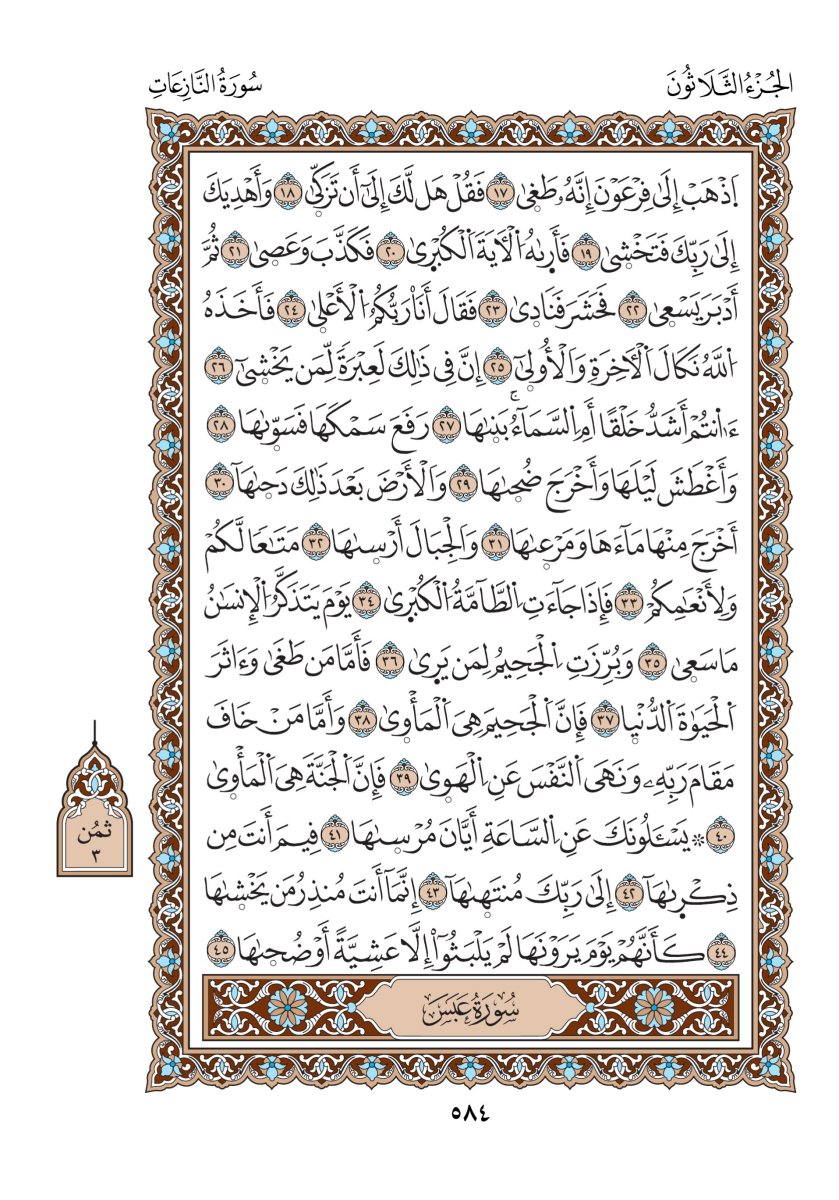 الجُزْءُ الثَّلَاثُونَ
سُورَةُ النَّازِعَاتِ
ٱذْهَبْ إِلَىٰ فِرْعَوْنَ إِنَّهُۥ طَغٜىٰ ١٧ فَقُلْ هَل لَّكَ إِلَىٰٓ أَن تَزَكّٜىٰ ١٨ وَأَهْدِيَكَ
إِلَىٰ رَبِّكَ فَتَخْشٜىٰ ١٩ فَأَرٜىٰهُ ٱلْأٓيَةَ ٱلْكُبْرٜىٰ ٢٠ فَكَذَّبَ وَعَصٜىٰ ٢١ ثُمَّ
أَدْبَرَ يَسْعٜىٰ ٢٢ فَحَشَرَ فَنَادٜىٰ ٢٣ فَقَالَ أَنَا۠ رَبُّكُمُ ٱلْأَعْلٜىٰ ٢٤ فَأَخَذَهُ
ٱللَّهُ نَكَالَ ٱلْأٓخِرَةِ وَٱلْأُولٜىٰٓ ٢٥ إِنَّ فِى ذَٰلِكَ لَعِبْرَةً لِّمَن يَخْشٜىٰٓ ٢٦
ءَا۬نتُمْ أَشَدُّ خَلْقًا أَمِ ٱلسَّمَآءُۚ بَنٜىٰهَا ٢٧ رَفَعَ سَمْكَهَا فَسَوّٜىٰهَا ٢٨
وَأَغْطَشَ لَيْلَهَا وَأَخْرَجَ ضُحٜىٰهَا ٢٩ وَٱلْأَرْضَ بَعْدَ ذَٰلِكَ دَحٜىٰهَآ ٣٠
أَخْرَجَ مِنْهَا مَآءَهَا وَمَرْعٜىٰهَا ٣١ وَٱلْجِبَالَ أَرْسٜىٰهَا ٣٢ مَتَٰعًا لَّكُمْ
وَلِأَنْعَٰمِكُمْ ٣٣ فَإِذَا جَآءَتِ ٱلطَّآمَّةُ ٱلْكُبْرٜىٰ ٣٤ يَوْمَ يَتَذَكَّرُ ٱلْإِنسَٰنُ
مَا سَعٜىٰ ٣٥ وَبُرِّزَتِ ٱلْجَحِيمُ لِمَن يَرٜىٰ ٣٦ فَأَمَّا مَن طَغَىٰ وَءَاثَرَ
ٱلْحَيَوٰةَ ٱلدُّنْيٜا ٣٧ فَإِنَّ ٱلْجَحِيمَ هِىَ ٱلْمَأْوٜىٰ ٣٨ وَأَمَّا مَنْ خَافَ
مَقَامَ رَبِّهِۦ وَنَهَى ٱلنَّفْسَ عَنِ ٱلْهَوٜىٰ ٣٩ فَإِنَّ ٱلْجَنَّةَ هِىَ ٱلْمَأْوٜىٰ
٤٠ ۞ يَسْـَٔلُونَكَ عَنِ ٱلسَّاعَةِ أَيَّانَ مُرْسٜىٰهَا ٤١ فِيمَ أَنتَ مِن
ذِكْرٜىٰهَآ ٤٢ إِلَىٰ رَبِّكَ مُنتَهٜىٰهَآ ٤٣ إِنَّمَآ أَنتَ مُنذِرُ مَن يَخْشٜىٰهَا
٤٤ كَأَنَّهُمْ يَوْمَ يَرَوْنَهَا لَمْ يَلْبَثُوٓا۟ إِلَّا عَشِيَّةً أَوْ ضُحٜىٰهَا ٤٥
سُورَةُ عَبَسَ
ثُمُن
٣
٥٨٤